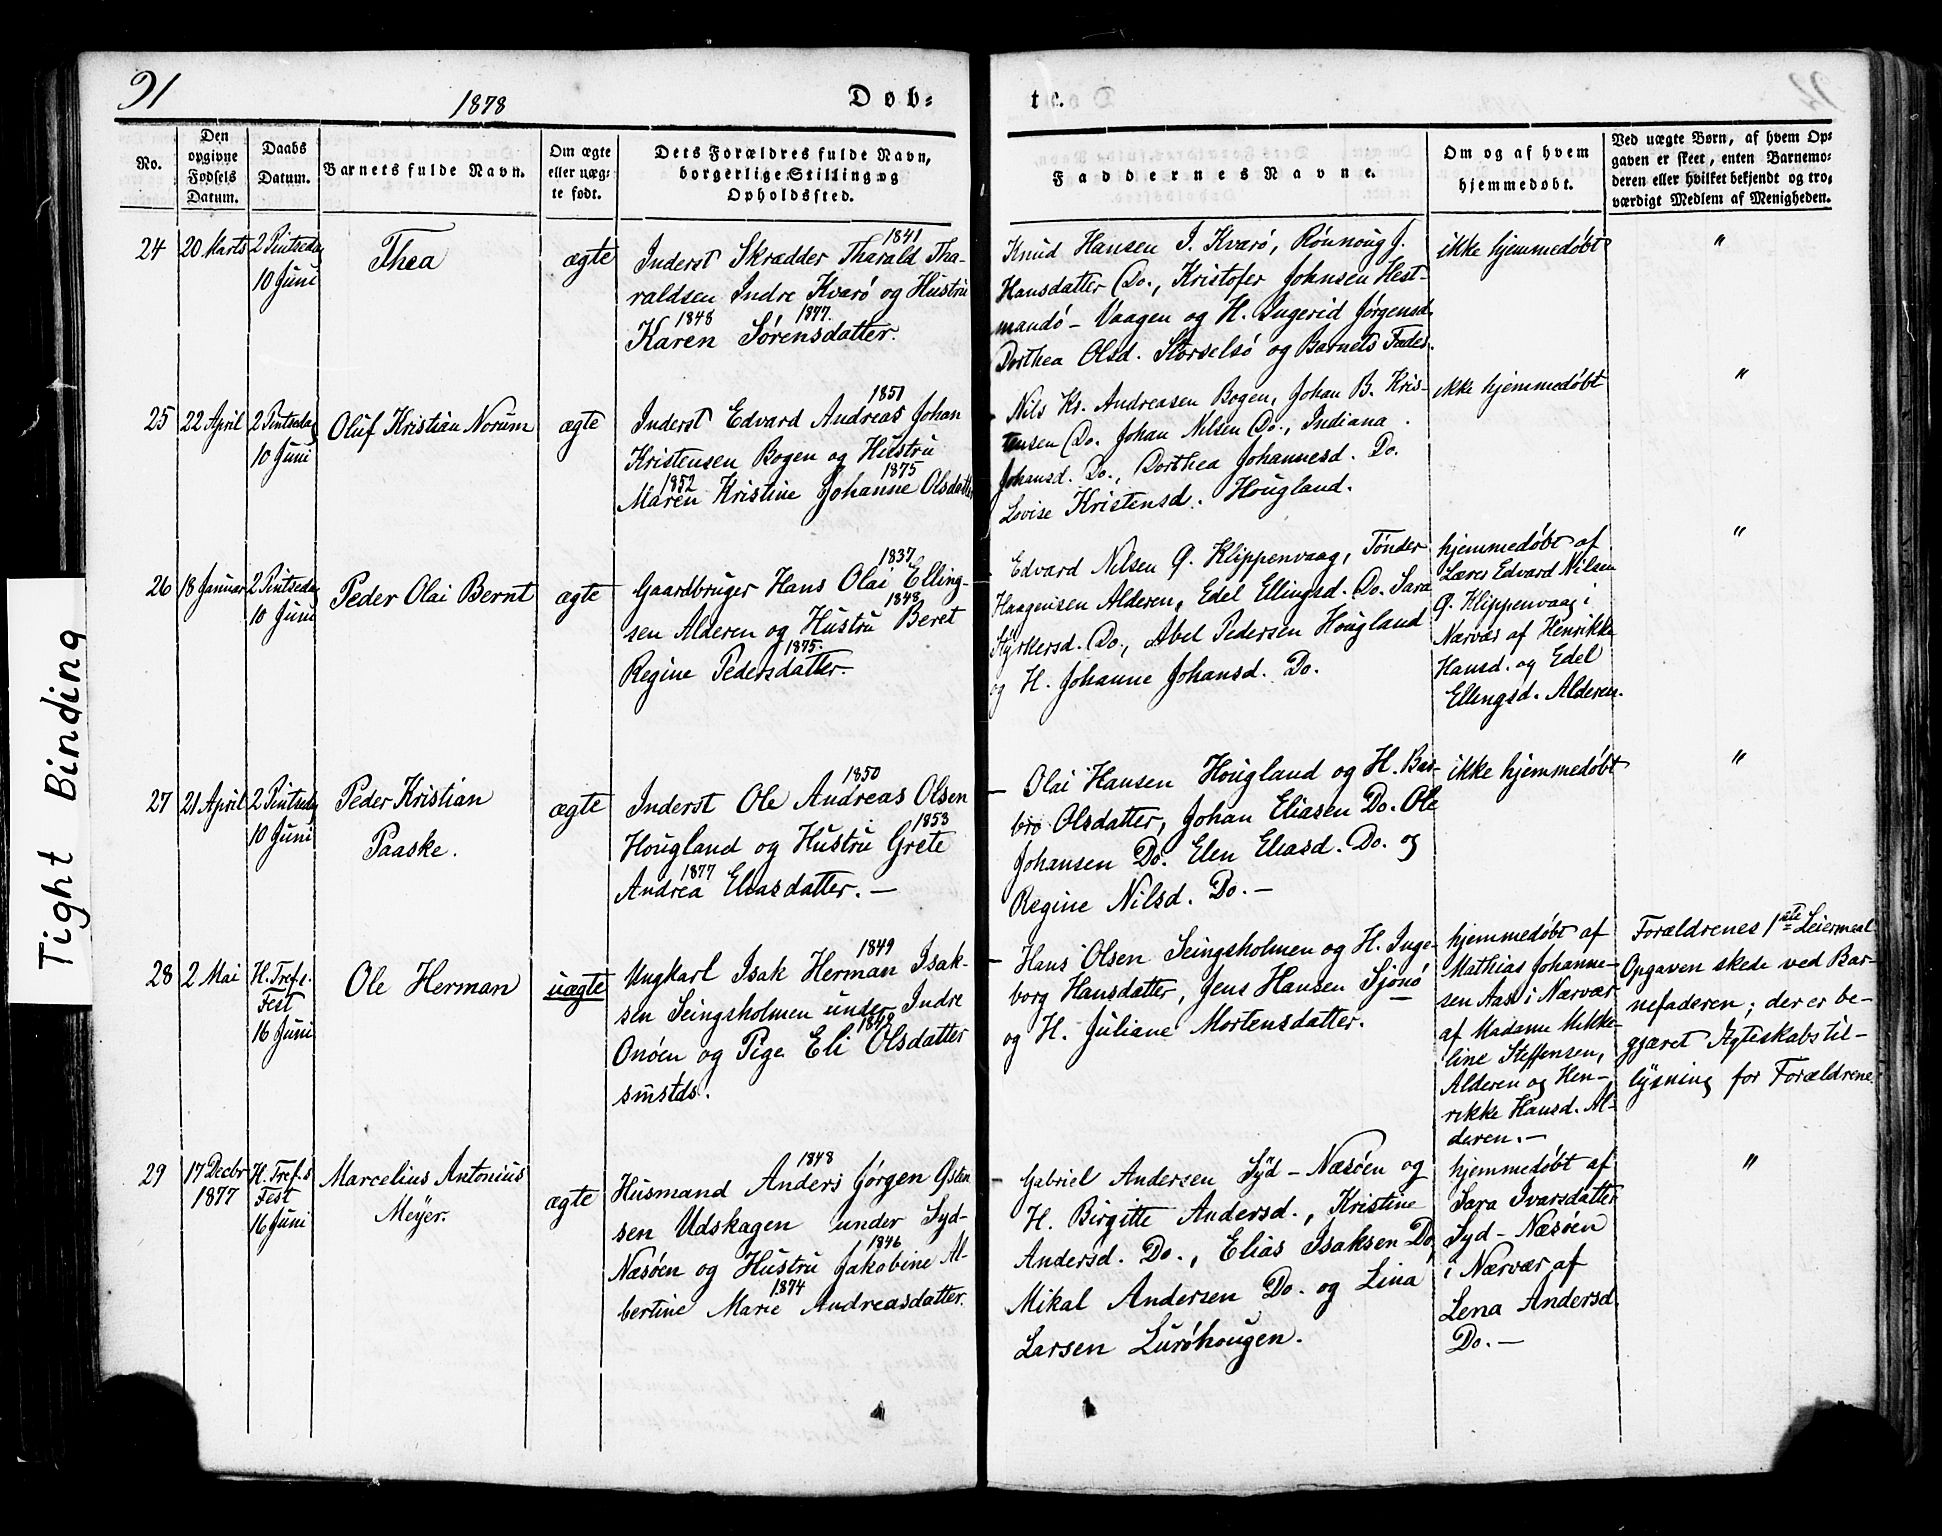 91
1878
Døb-
te.
Tight Binding
No.
Den opgivne Fødsels Datum.
Daabs Datum.
Barnets fulde Navn.
Om ægte eller uægte født.
Dets Forældres fulde Navn, borgerlige Stilling og Opholdssted.
Faddernes Navne.
Om og af hvem hjemmedøbt.
Ved uægte Børn, af hvem Opgaven er skeet, enten Barnemoderen eller hvilket bekjendt og troværdigt Medlem af Menigheden.
24
20 Marts
2 Pintsedag
10 Juni
Thea
ægte
1841
Inderst Skrædder Tharald Tha-
raldsen Indre Kvarö og Hustru
1848 1877.
Karen Sörensdatter.
Knud Hansen I. Kvarö, Rönnoug J.
Hansdatter Do., Kristofer Johnsen Hest-
mandö - Vaagen og H. Ingerid Jörgensd.
Dorthea Olsd. Storselsö og Barnets Fader.
ikke hjemmedöbt
"
25
22 April
2 Pintsedag
10 Juni
Oluf Kristian Norum
ægte
1851
Inderst Edvard Andreas Johan
Kristensen Bogen og Hustru
1852 1875
Maren Kristine Johanne Olsdatter
- Nils Kr. Andreasen Bogen, Johan B. Kris-
tensen Do. Johan Nilsen Do., Indiana
Johansd. Do., Dorthea Johannesd. Do.
Lovise Kristensd. Hougland.
ikke hjemmedöbt
"
26
18 Januar
2 Pintsedag
10 Juni
Peder Olai Bernt
ægte
1837
Gaardbruger Hans Olai Elling-
1848
sen Alderen og Hustru Beret
1875.
Regine Pedersdatter.
- Edvard Nilsen Q. Klippenvaag, Tönder
Haagensen Alderen, Edel Ellingsd. Do. Sara
Styrkersd. Do., Abel Pedersen Hougland
og H. Johanne Johansd. Do.
hjemmedöbt af
Lærer Edvard Nilsen
Q. Klippenvaag i
Nærvær af Henrikke
Hansd. og Edel
Ellingsd. Alderen.
"
27
21 April
2 Pintsedag
10 Juni
Peder Kristian
Paaske.
ægte
1850
Inderst Ole Andreas Olsen
1853
Hougland og Hustru Grete
1877
Andrea Eliasdatter. —
— Olai Hansen Hougland og H. Bar-
bro Olsdatter, Johan Eliasen Do. Ole
Johansen Do. Elen Eliasd. Do. og
Regine Nilsd. Do. —
ikke hjemmedöbt
"
28
2 Mai
H. Tref.s
Fest
16 Juni
Ole Herman
uægte
1849
Ungkarl Isak Herman Isak-
sen Seingsholmen under Indre
1849
Onöen og Pige Eli Olsdatter
smstds.
— Hans Olsen Seingsholmen og H. Inge-
borg Hansdatter, Jens Hansen Sjönö
og H. Juliane Mortensdatter.
hjemmedöbt af
Mathias Johanne-
sen Aas i Nærvær
af Madame Mikke-
line Steffensen,
Alderen og Hen-
rikke Hansd. Al-
deren. —
Forældrenes 1ste Leiermaal
Opgaven skede ved Bar-
nefaderen; der er be-
gjæret Ægteskabstil-
lysning for Forældrene
29
17 Decbr
1877
H. Tref.s
Fest
16 Juni
Marcelius Antonius
Meÿer.
ægte
1848
Husmand Anders Jörgen Östen
sen Udskagen under Syd-
1846
Næsöen og Hustru Jakobine Al-
1874
bertine Marie Andreasdatter.
- Gabriel Andersen Syd - Næsöen og
H. Birgitte Andersd., Kristine
Andersd. Do., Elias Isaksen Do
Mikal Andersen Do. og Lina
Larsen Luröhougen.
hjemmedöbt af
Sara Ivarsdatter
Syd - Næsöen
i Nærvær af
Lena Andersd.
Do. —
"